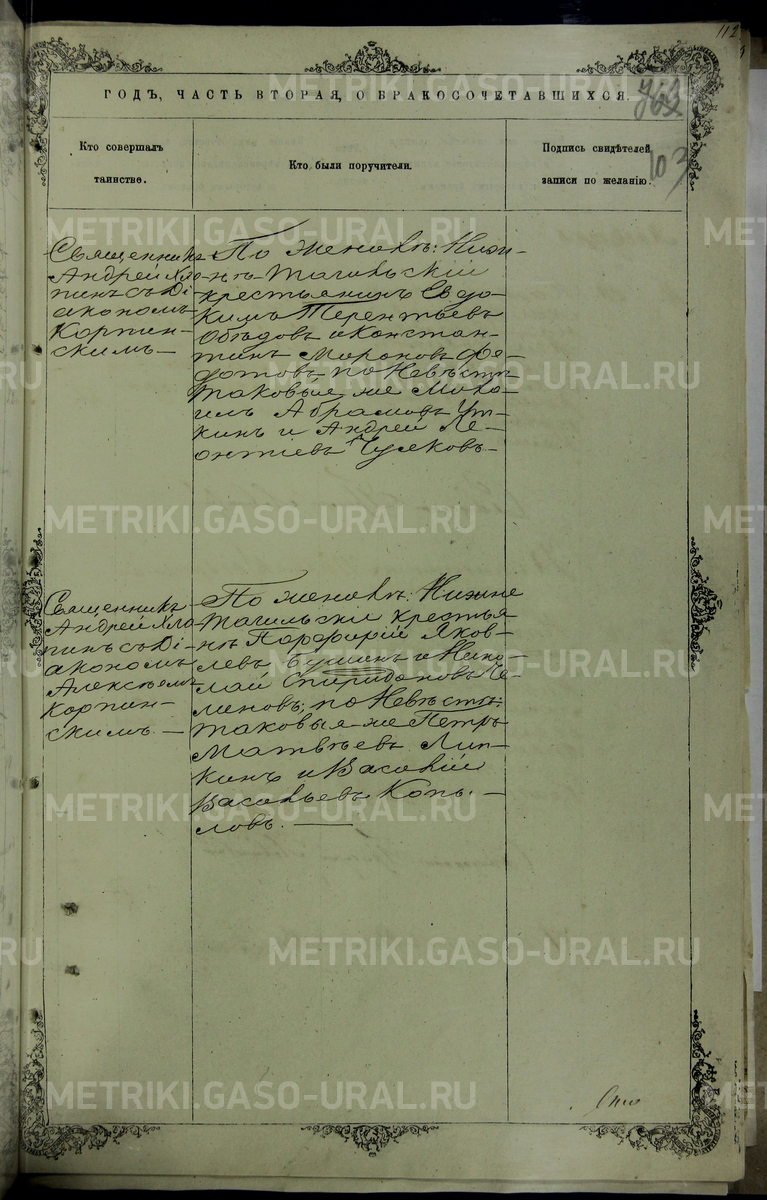 112
ГОДЪ, ЧАСТЬ ВТОРАЯ, О БРАКОСОЧЕТАВШИХСЯ.
Кто совершалъ
таинство.
Кто были поручители.
Подпись свидѣтелей
записи по желанію.
103
Священникъ
Андрей Хло-
пинъ съ Ді-
акономъ
Корпин-
скимъ —
По женихѣ: Нижн-
нъ Тагильскій
крестьянинъ Евдо-
кимъ Терентьевъ
Обѣдовъ и Констан-
тинъ Мироновъ Фе-
дотовъ, по Невѣстѣ
таковые же
Абрамовъ Ут-
кинъ и Андрей Ле-
онтіевъ Чуяковъ —
Священникъ
Андрей Хло-
пинъ съ Ді-
акономъ
Алексѣемъ
Корпин-
скимъ. —
По женихѣ: Нижне
Тагильскіи крестья
нъ Порфирій Яков-
левъ и Нико-
лай Спиридоновъ Че-
меновъ, по Невѣстѣ:
таковыя же Петръ
Матвѣевъ Лип-
кинъ и Василій
Васильевъ Копы. —
ловъ. —
METRIKI.GASO-URAL.RU